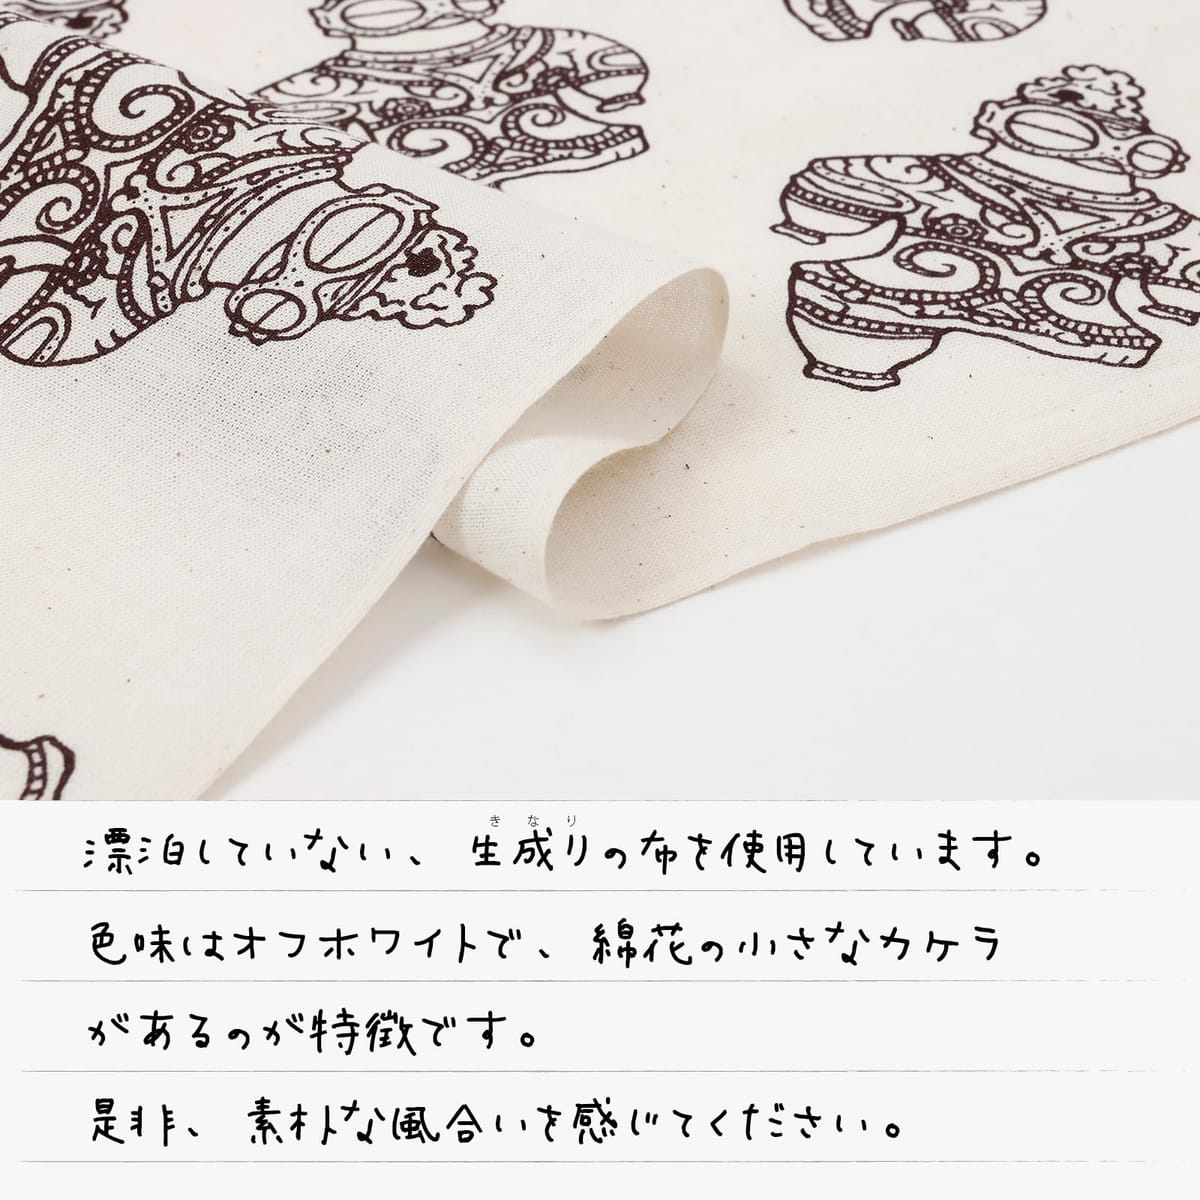 漂泊していない、生成りの布を使用しています。
色味はオフホワイトで、綿花の小さなカケラ
があるのが特徴です。
是非、素朴な風合いを感じてください。